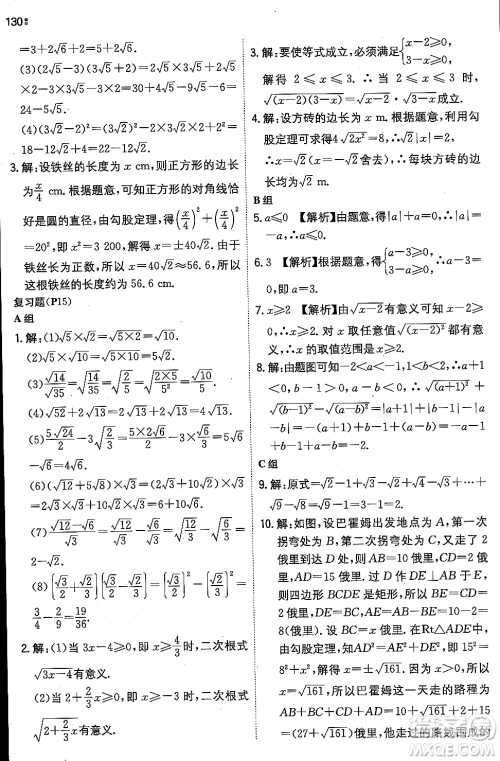 130
=3+2√6-2√6=√6.
(3)(2√5-3)(3√5-2)=2√5×3√5-2√5
×2-3×3√5-3×(-2)=30-4√5-9√5+6=
24-5√5.
(4)(3√2-2)²=(3√2)²-2×3√2×2+2²=
18-12√2+4=22-12√2.
3.解:设铁丝的长度为x cm,则正方形的边长
为x/4 cm.根据题意,可知正方形的对角线恰
好是圆的直径,由勾股定理,得(x/4)²+(x/4)²
=20²,即x²=3 200,解得x=±40√2.由于
铁丝长为正数,所以x=40√2≈56.6,即
这根铁丝约为56.6 cm.
复习题(P15)
A组
1.解:(1)√5×√2=√5×2=√10.
(2)√5×√2=√5×2=√10.
(3)√14/√35=√(14/35)=√(2/5)=√(2×5/5×5)=√10/5.
(4)√2×√13+√2×√13=2√2×13=2√26.
(5)5√24/2-3√(2/3)=5√6-√6=4√6.
(6)(√12+5√8)×√3=√12×3+5√8×3
=2√3×√3+5×2√6=6+10√6.
(7)(√12-√6)/√3=√(12/3)-√(6/3)=√4-√2
=2-√2.
(8)(√3/2+√(2/3))(√3/2-√(2/3))=(√3/2)²-(√(2/3))²=
3/4-6/9=19/36.
2.解:(1)当3x-4≥0,即x≥4/3时,二次根式
√3x-4有意义.
(2)当2+2/3x≥0,即x≥-3时,二次根式
√(2+2/3x)有意义.
3.解:要使等式成立,必须满足{x-2≥0,3-x≥0,
解得2≤x≤3.∴当2≤x≤3时,
√(x-2)(3-x)=√x-2·√3-x成立.
4.解:设方砖的边长为x m.根据题意,可利用
勾股定理得4√x²+x²=8,解得x₁=√2,
x₂=-√2(舍去),∴每块方砖的边长
为√2 m.
B组
5.a≤0 【解析】由题意,得|a|+a=0,即|a|
=-a,∴a≤0.
6.3 【解析】根据题意,得{a-3≥0,3-a≥0,∴a-3
=0,即a=3.
7.x≥2 【解析】∵√x-2有意义可得x-2≥
0,∴x≥2.对x取任意值√(x-2)²都有意
义,∴x的取值范围是x≥2.
8.解:由题图可知-2<a<-1,1<b<2,∴a+1
<0,b-1>0,a-b<0,∴√(a+1)²+
√(b-1)²-√(a-b)²=|a+1|+|b-1|-
|a-b|=-a-1+b-1+a-b=-2.
C组
9.原式=√1-√3-1+√2+√5-√4+√9
-√9-√8=-1+√9=-1+3=2.
10.解:如图,设巴霍姆出发地点为A,第一次
拐弯处为B,第二次拐弯处为C,第三次
拐弯处为D,则AB=10俄里,CD=2俄
里,BC⊥AB,CD⊥BC.作DE⊥AB,则四
边形BCDE为矩形,∴BE=CD=2俄里,
BC=DE,∴AE=AB-BE=10-2=8
(俄里).设BC=x俄里,在Rt△ADE中,
由勾股定理,知AD²=AE²+DE²,即15²=
8²+x²,∴x=√15²-8²=√161,即BC
=√161俄里,则巴霍姆这一天走的路程为
AB+BC+CD+AD=10+√161+2+15
=27+√161(俄里),他走过的路线围成的